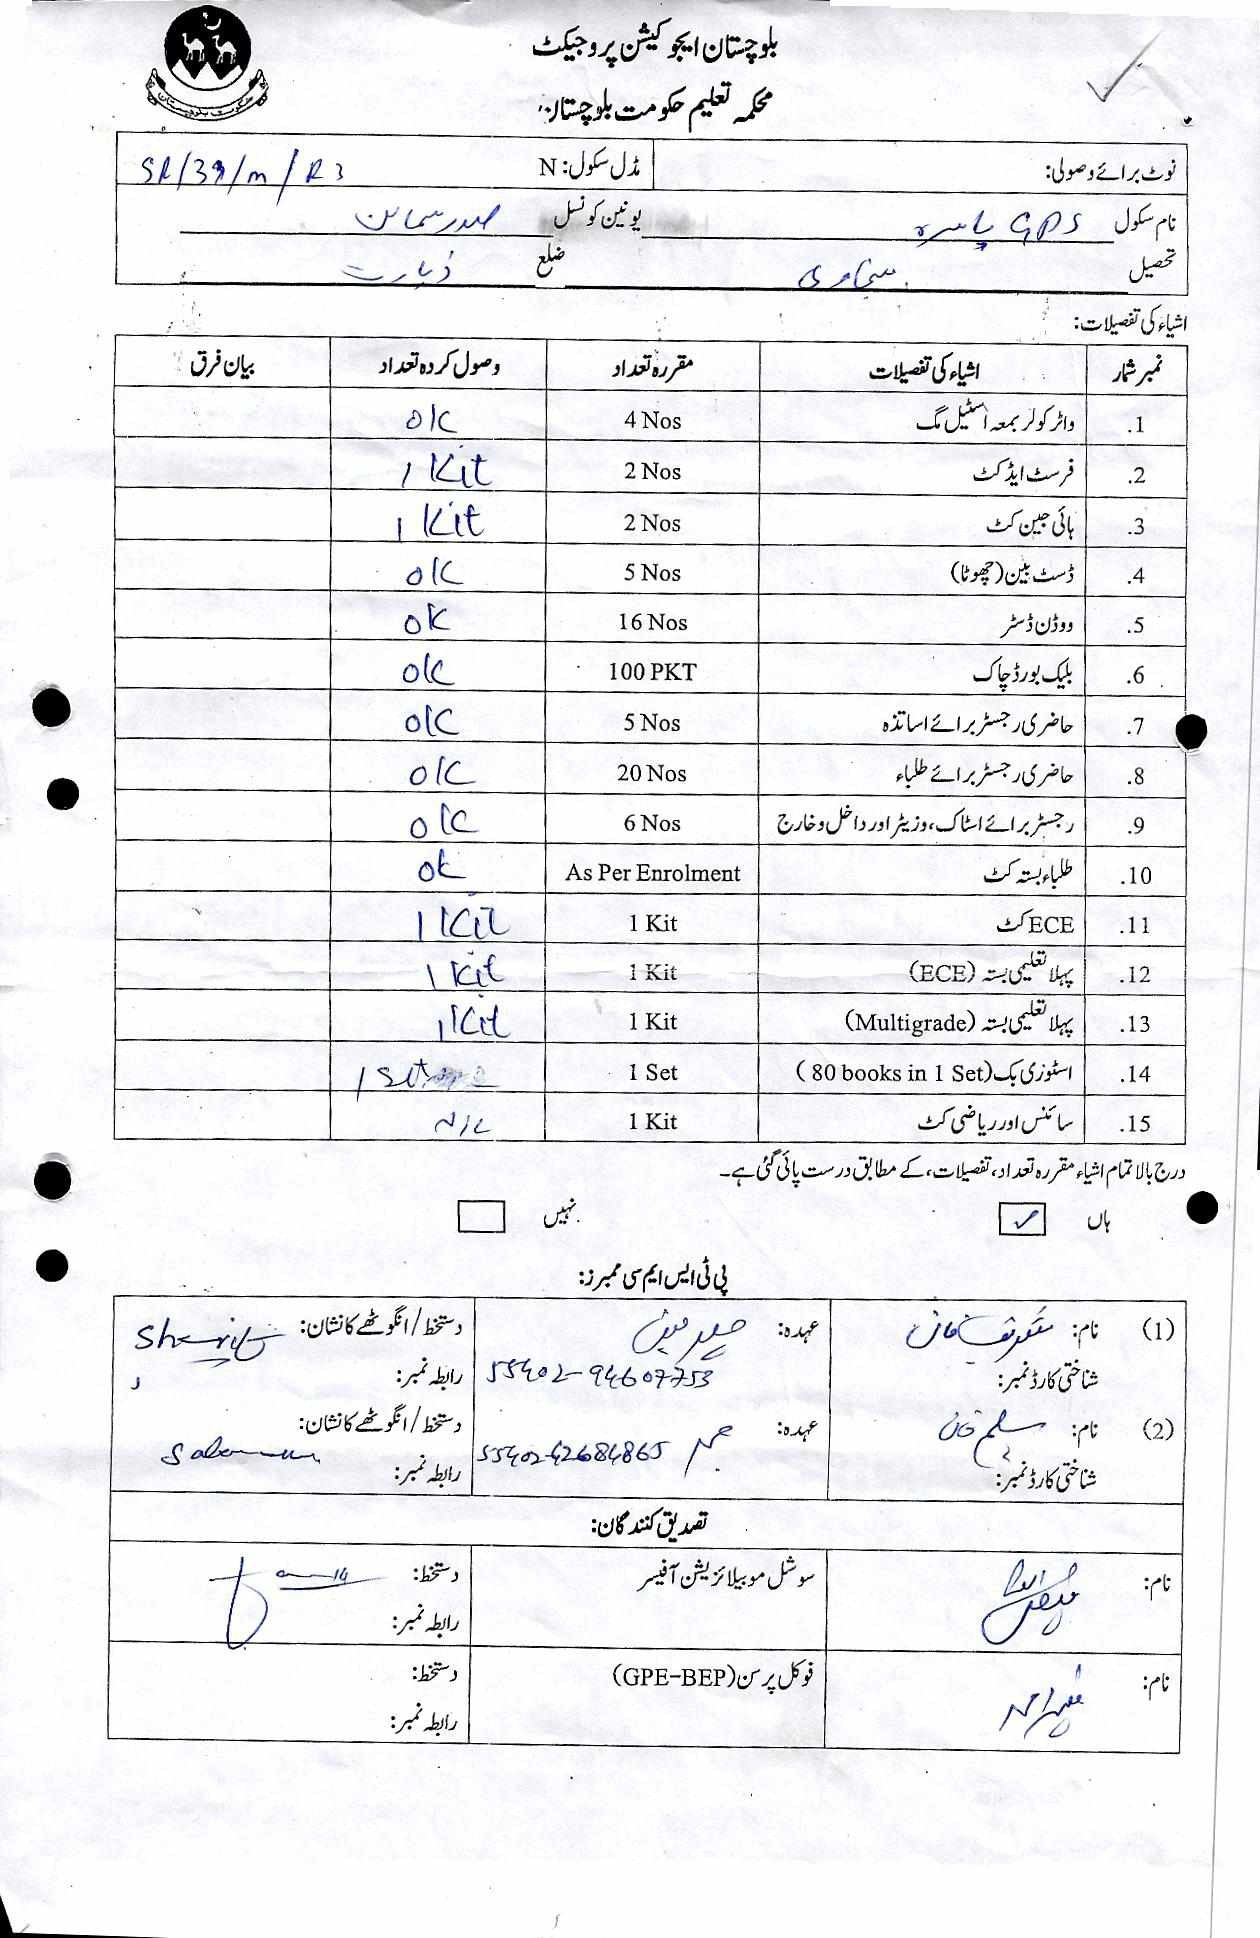 بلوچستان ایجوکیشن پروجیکٹ
محکمہ تعلیم حکومت بلوچستان
حکومت بلوچستان
نوٹ برائے وصولی: مڈل سکول: N SR/39/m/R3
نام سکول GPS یونین کونسل
تحصیل سنجاوی ضلع زیارت
اشیاء کی تفصیلات:
نمبر شمار اشیاء کی تفصیلات مقررہ تعداد وصول کردہ تعداد بیان فرق
1. واٹر کولر بمعہ اسٹیل مگ 4 Nos OK
2. فرسٹ ایڈ کٹ 2 Nos 1 Kit
3. ہائی جین کٹ 2 Nos 1 Kit
4. ڈسٹ بین (چھوٹا) 5 Nos OK
5. ووڈن ڈسٹر 16 Nos OK
6. بلیک بورڈ چاک 100 PKT OK
7. حاضری رجسٹر برائے اساتذہ 5 Nos OK
8. حاضری رجسٹر برائے طلباء 20 Nos OK
9. رجسٹر برائے اسٹاک، وزیٹر اور داخل و خارج 6 Nos OK
10. طلباء بستہ کٹ As Per Enrolment OK
11. ECE کٹ 1 Kit 1 Kit
12. پہلا تعلیمی بستہ (ECE) 1 Kit 1 Kit
13. پہلا تعلیمی بستہ (Multigrade) 1 Kit 1 Kit
14. اسٹوری بک (80 books in 1 Set) 1 Set 1 Set
15. سائنس اور ریاضی کٹ 1 Kit
درج بالا تمام اشیاء مقررہ تعداد، تفصیلات، کے مطابق درست پائی گئی ہے۔
ہاں ✓ نہیں
پی ٹی ایس ایم سی ممبرز:
(1) نام: عہدہ: چیرمین دستخط/انگوٹھے کا نشان: Sharif
شناختی کارڈ نمبر: 55402-94607753 رابطہ نمبر:
(2) نام: سلیم خان عہدہ: ممبر دستخط/انگوٹھے کا نشان:
شناختی کارڈ نمبر: 55402-42684865 رابطہ نمبر:
تصدیق کنندگان:
نام: سوشل موبیلائزیشن آفیسر دستخط:
رابطہ نمبر:
نام: فوکل پرسن (GPE-BEP) دستخط:
رابطہ نمبر: